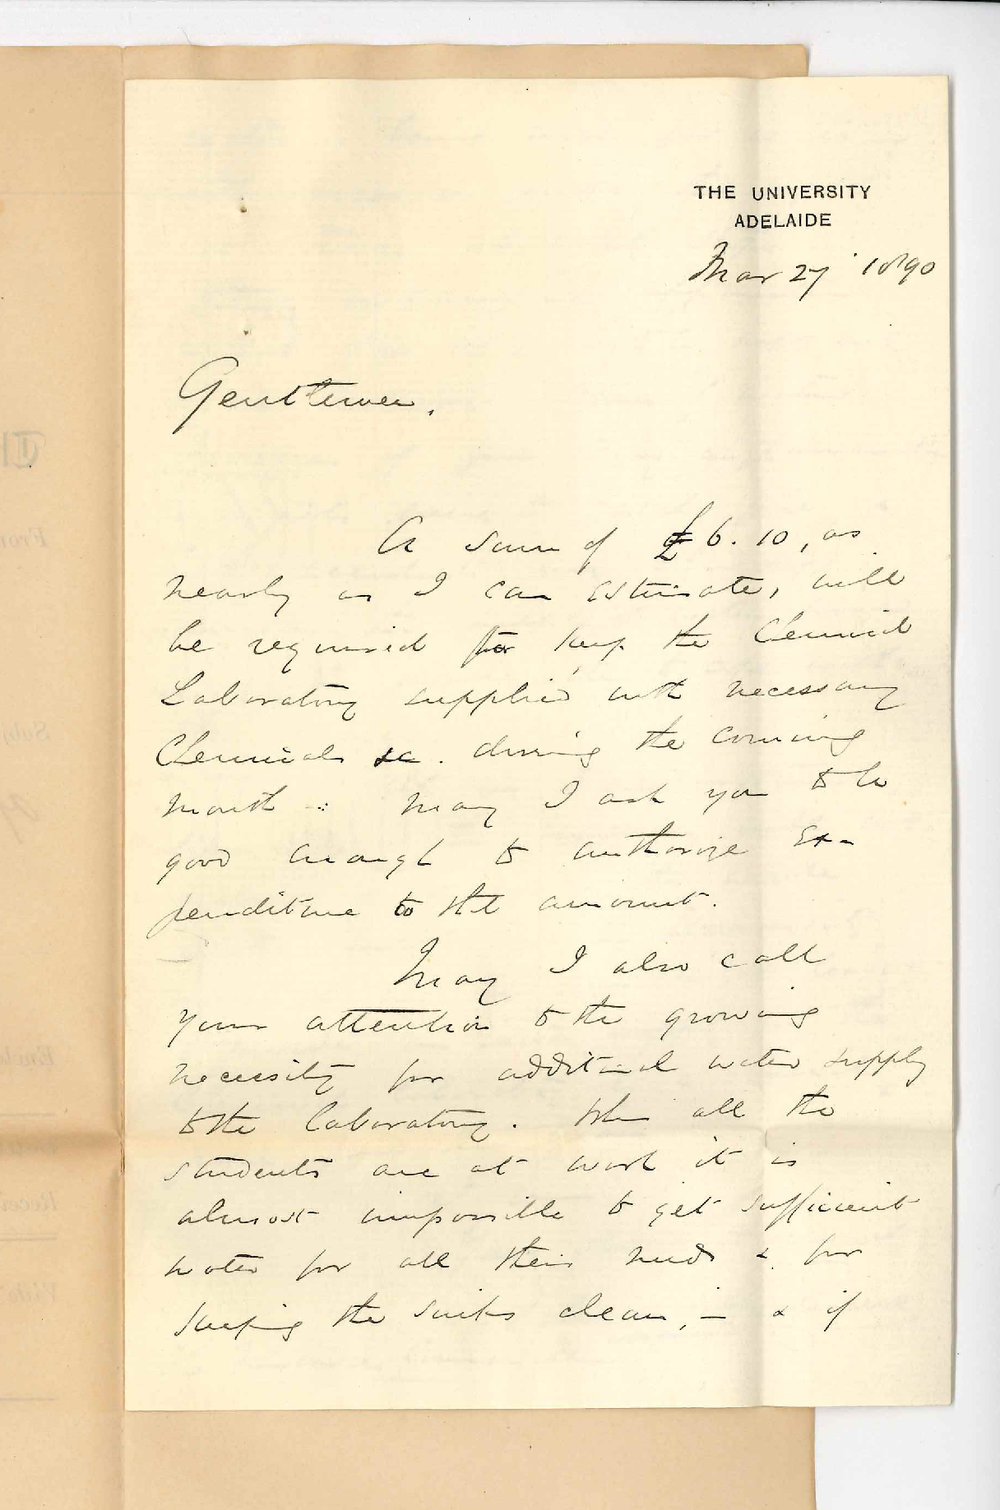 THE UNIVERSITY
ADELAIDE
Mar 27 1890
Gentlemen,
A sum of £6.10, as
nearly as I can estimate, will
be required to keep the Chemical
Laboratory supplied with necessary
Chemicals &c. during the coming
month :- may I ask you to be
good enough to authorize ex-
penditure to that amount.
May I also call
your attention to the growing
necessity for additional water supply
to the laboratory. When all the
students are at work it is
almost impossible to get sufficient
water for all their needs & for
keeping the sinks clean, - & if